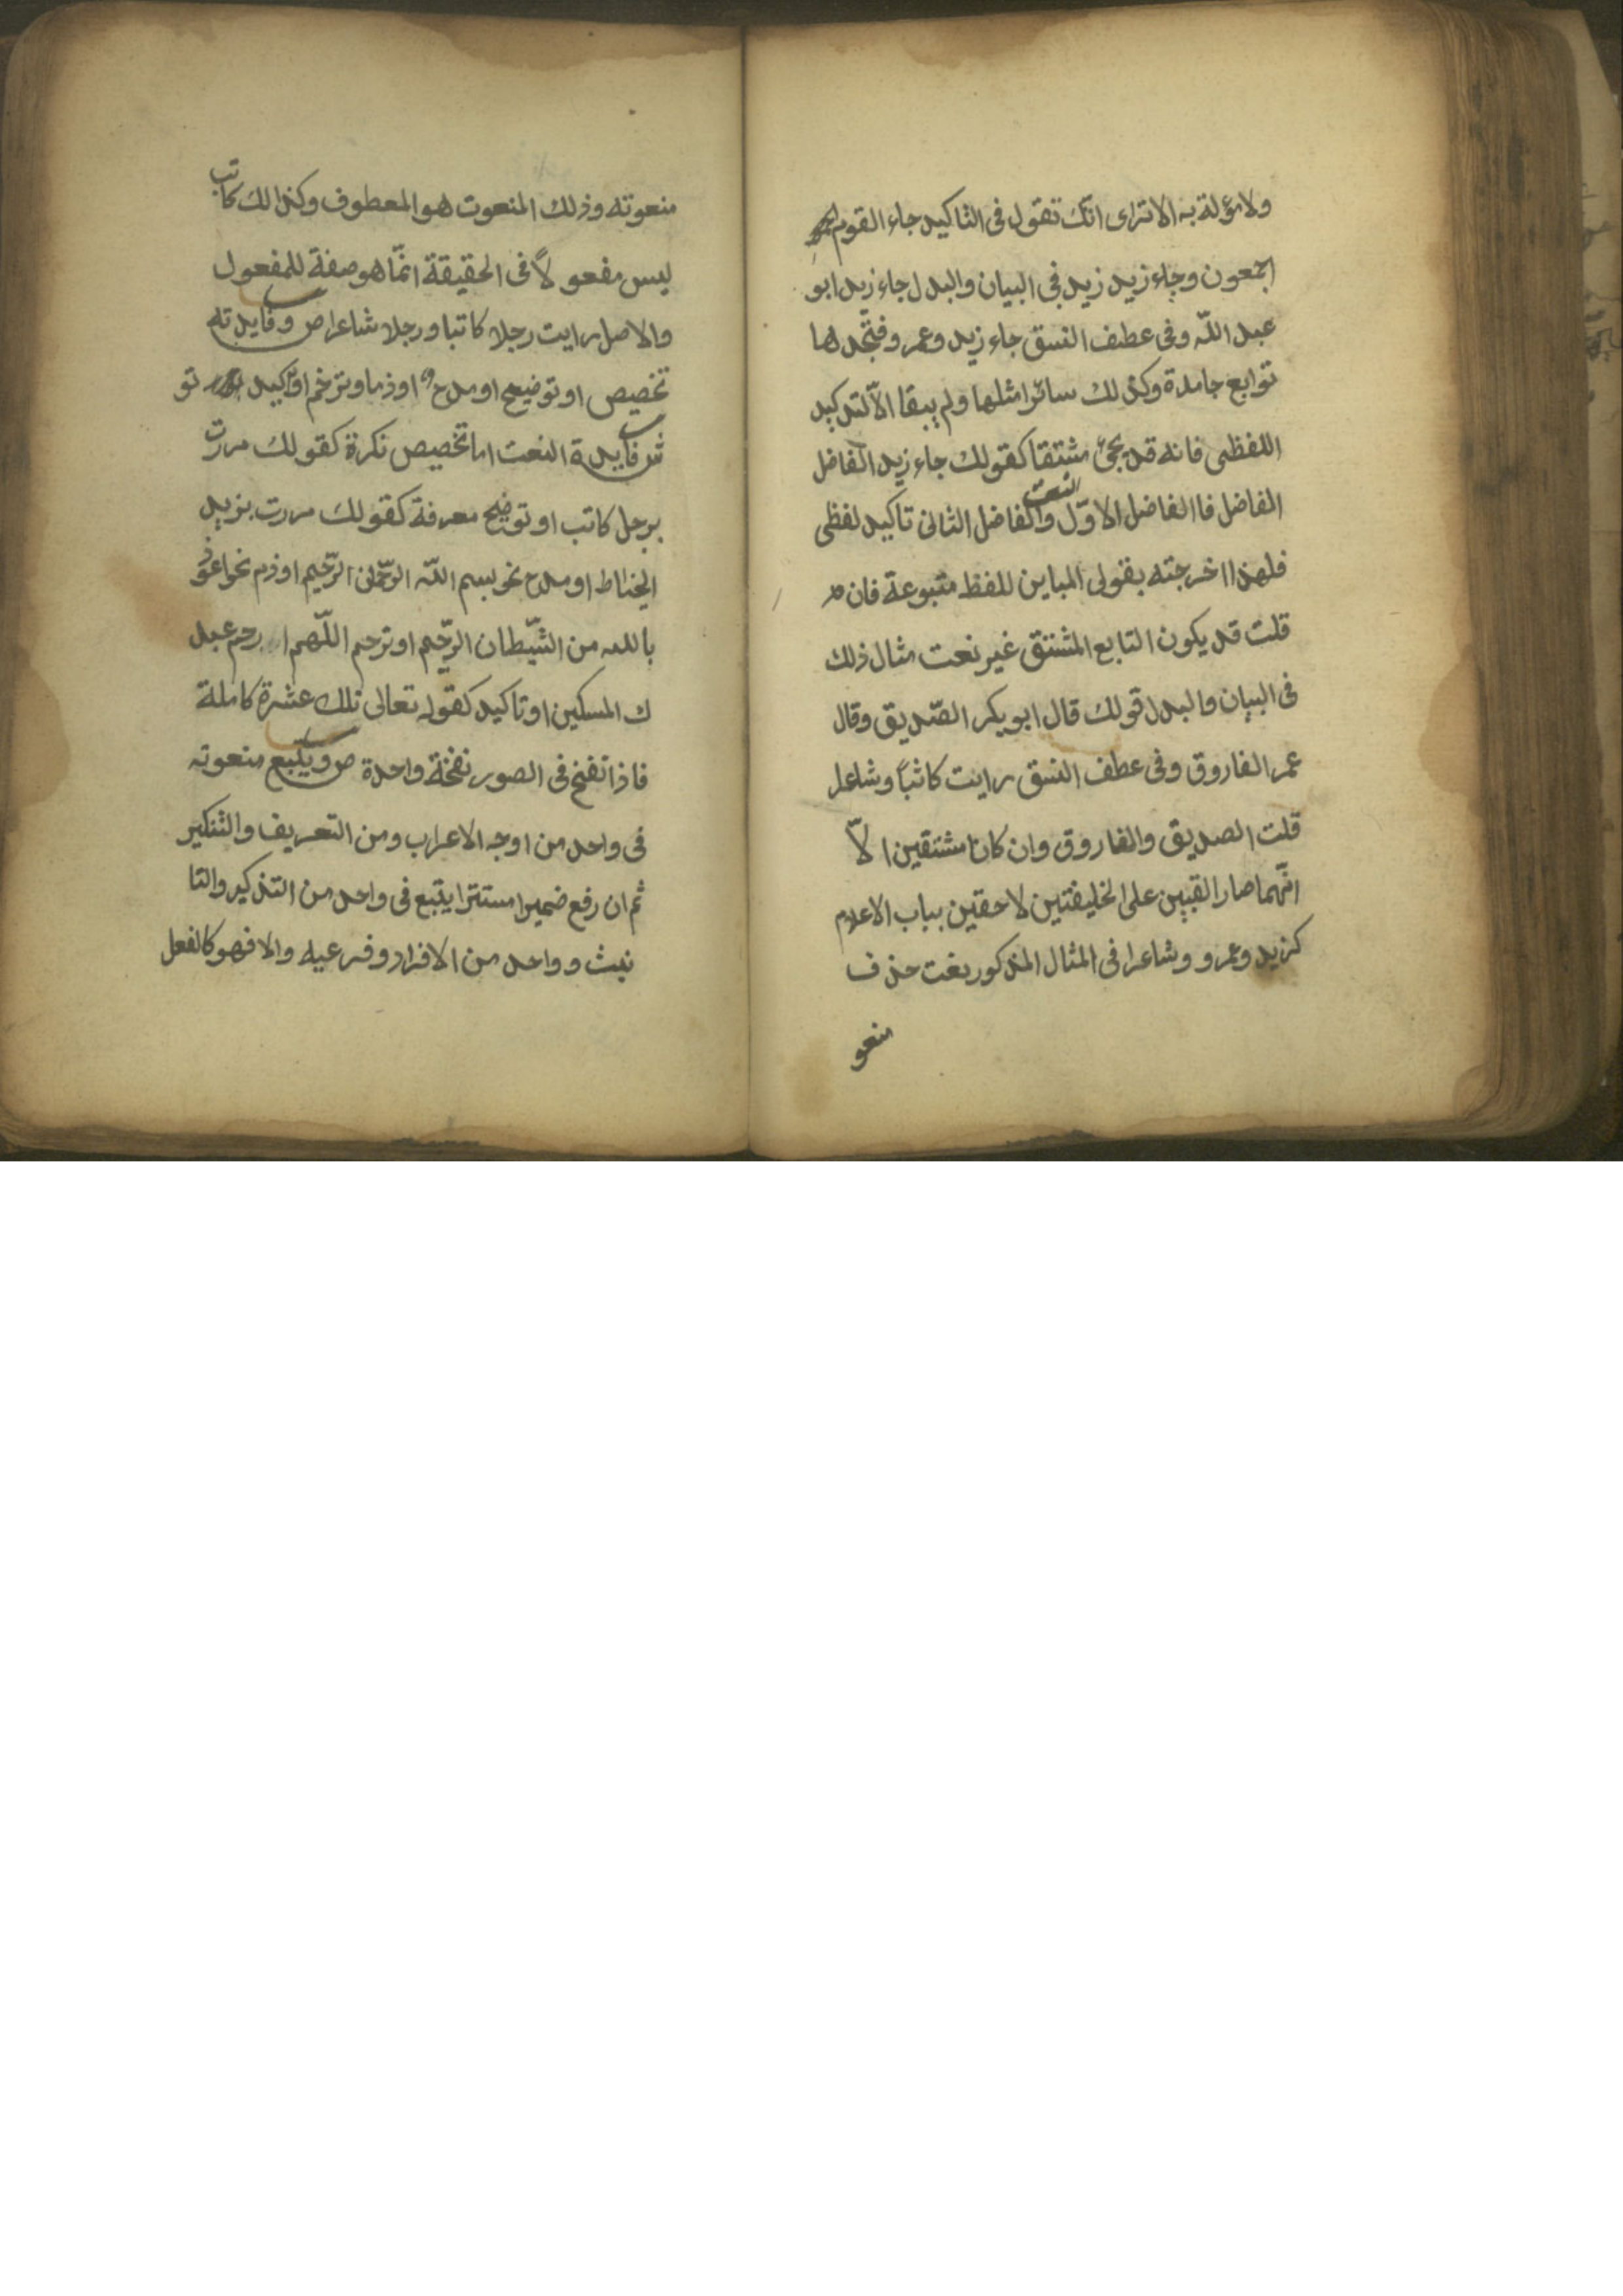 ولا مؤلة به الا ترى انك تقول فى التاكيد جاء القوم
اجمعون وجاء زيد زيد فى البيان والبدل جاء زيد ابو
عبد اللّه وفى عطف النسق جاء زيد وعمرو فتجدها
توابع جامدة وكذلك سائر امثلها ولم يبقا الاّ لتدكيد
اللفظى فانه قد يجئ مشتقا كقولك جاء زيد الفاضل
الفاضل فا الفاضل الاوّل النعت والفاضل الثانى تاكيد لفظى
فلهذا اخرجته بقولى المباين للفظ متبوعة فان
قلت قد يكون التابع المشتق غير نعت مثال ذلك
فى البيان والبدل قولك قال ابو بكر الصّديق وقال
عمر الفاروق وفى عطف النسق رايت كاتباً وشاعرا
قلت الصديق والفاروق وان كانا مشتقين الاّ
انّهما صارا لقبين على الخليفتين لاحقين بباب الاعلام
كزيد وعمرو وشاعرا فى المثال المذكور بغت حذف
منعو
منعوته وذلك المنعوت هو المعطوف وكذالك كاتب
ليس مفعولاً فى الحقيقة انّما هو صفة للمفعول
والاصل رايت رجلا كاتبا ورجلا شاعرا ص وفايدته
تخصيص او توضيح او مدح او ذم او ترخم او تاكيد تو
ش فايدة النعت اما تخصيص نكرة كقولك مررت
برجل كاتب او توضيح معرفة كقولك مررت بزيد
الخياط او مدح نحو بسم اللّه الرّحمن الرّحيم او ذم نحو اعوذ
بالله من الشّيطان الرّجيم او ترحم اللّهم ارحم عبد
ك المسكين او تاكيد كقوله تعالى تلك عشرة كاملة
فاذا نفخ فى الصور نفخة واحدة ص ويتبع منعوته
فى واحد من اوجه الاعراب ومن التعريف والتنكير
ثم ان رفع ضميرا مستترا يتبع فى واحد من التذكير والتا
نيث وواحد من الافراد وفرعيه والا فهو كالفعل